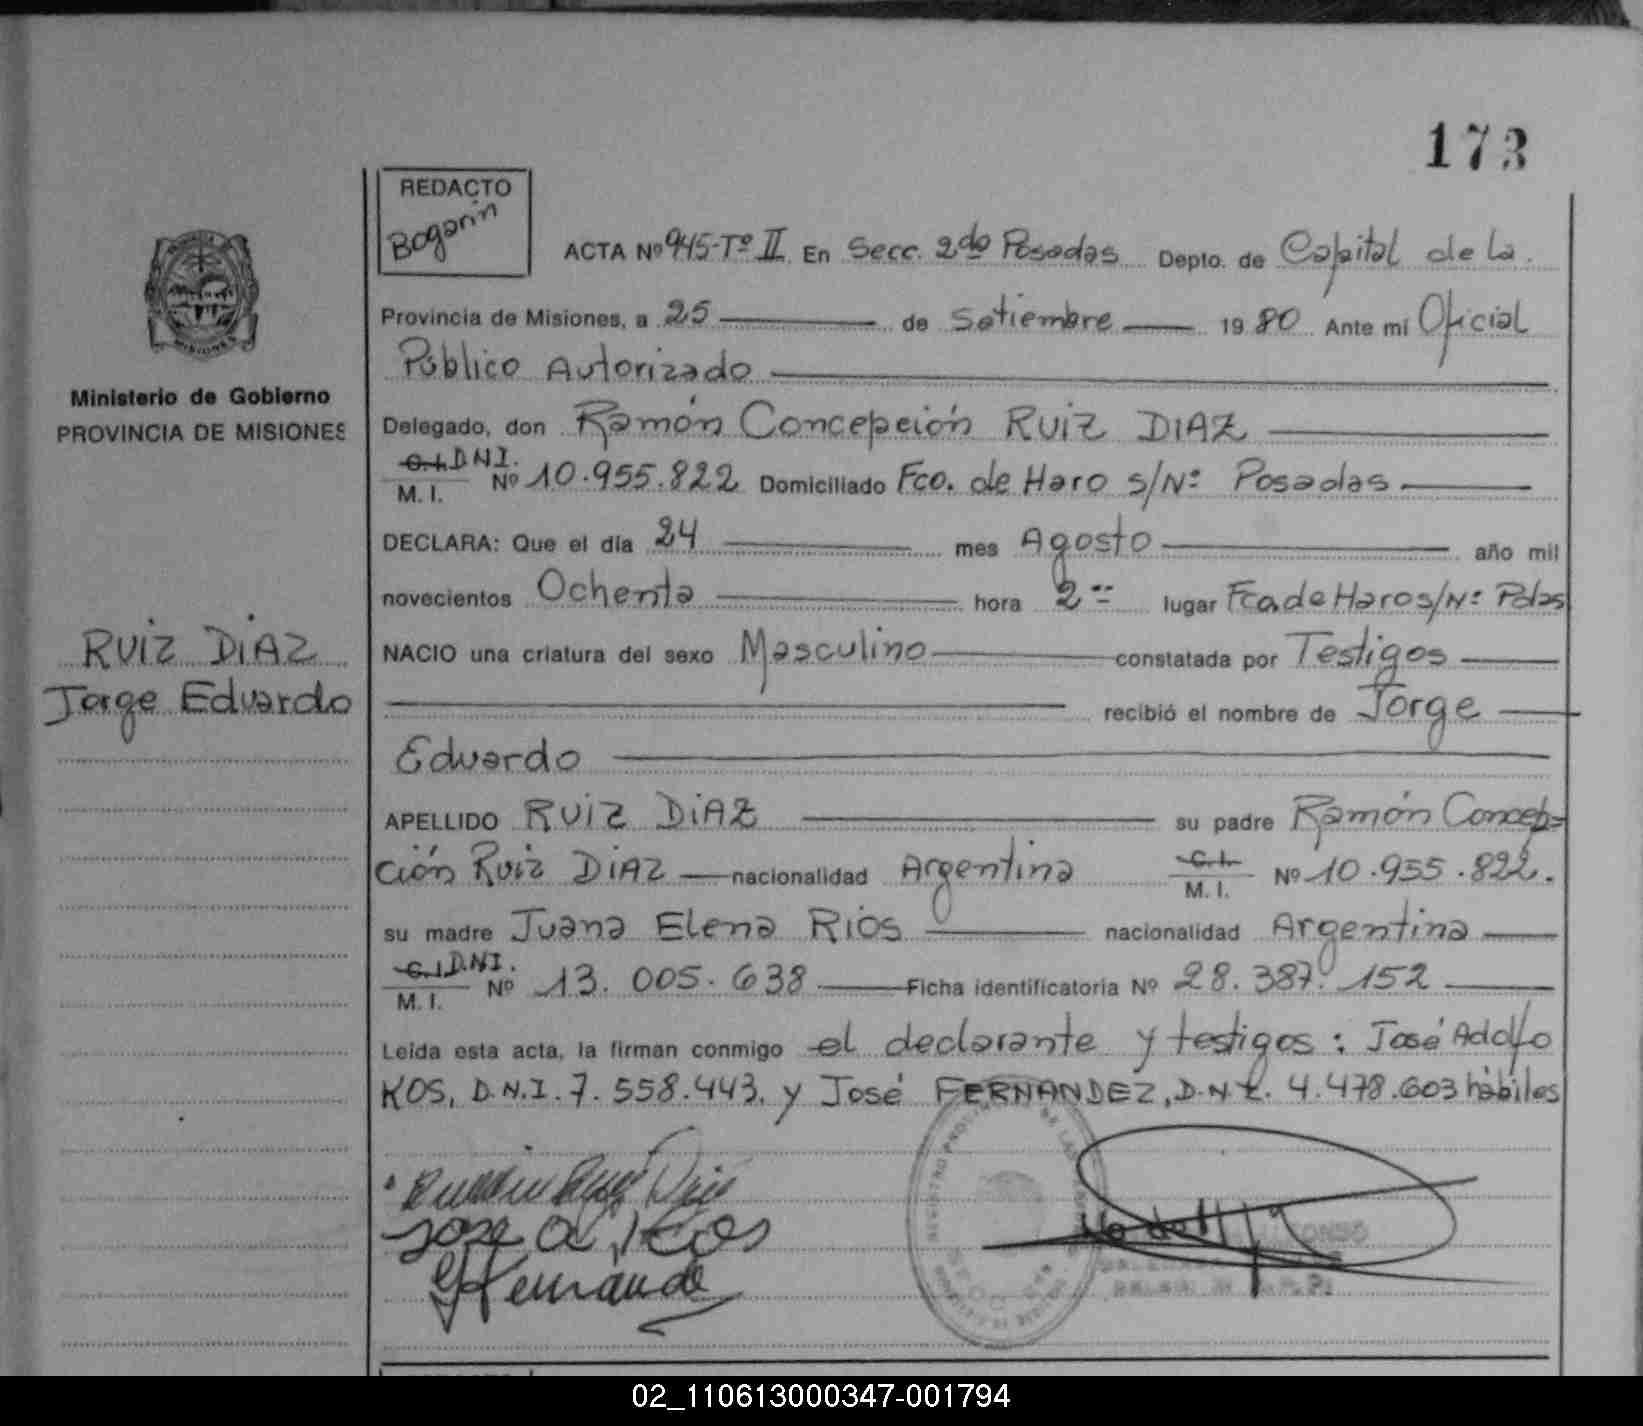 173
REDACTO
Bogarin
ACTA Nº 945-Tº II En Secc. 2da Posadas Depto. de Capital de La
Provincia de Misiones, a 25 de Setiembre 1980 Ante mi Oficial
Público Autorizado
Delegado, don Ramón Concepción RUIZ DIAZ
C.I. D.N.I.
M. I. Nº 10.955.822 Domiciliado Fco. de Haro s/Nº Posadas
DECLARA: Que el dia 24 mes Agosto año mil
novecientos Ochenta hora 2 lugar Fco de Haro s/Nº Pdas
NACIO una criatura del sexo Masculino constatada por Testigos
recibió el nombre de Jorge
Eduardo
APELLIDO RUIZ DIAZ su padre Ramón Concep-
ción Ruiz DIAZ nacionalidad Argentina C.I. M. I. Nº 10.955.822.
su madre Juana Elena Rios nacionalidad Argentina
C.I. D.N.I.
M. I. Nº 13.005.638 Ficha identificatoria Nº 28.387.152
Leida esta acta, la firman conmigo el declarante y testigos: José Adolfo
KOS, D.N.I. 7.558.443. y José FERNANDEZ, D.N.I. 4.478.603 hábiles
Jose A. Kos
MISIONES
Ministerio de Gobierno
PROVINCIA DE MISIONES
RUIZ DIAZ
Jorge Eduardo
02_110613000347-001794